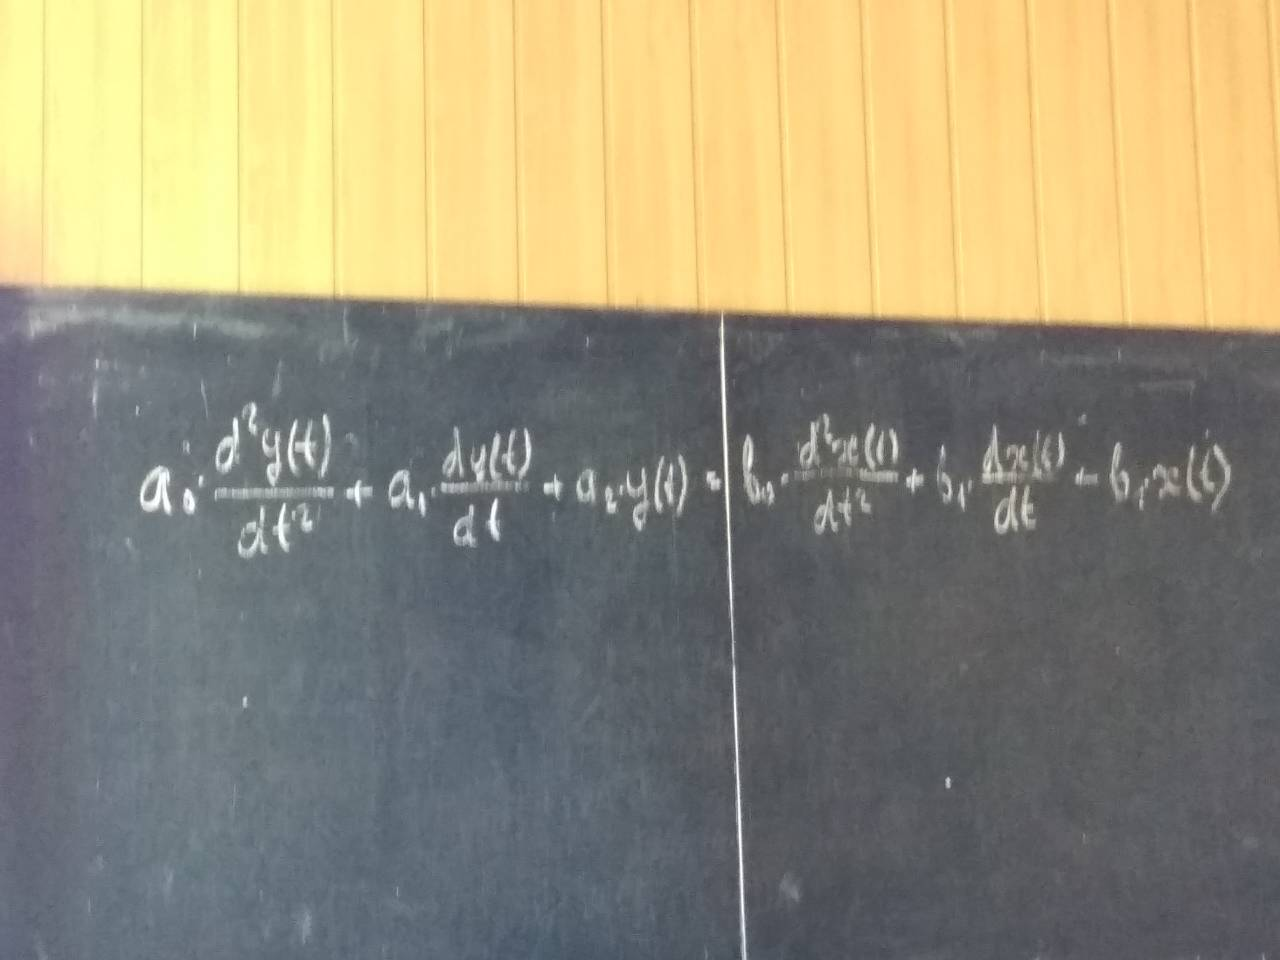 a₀·d²y(t)/dt² + a₁·dy(t)/dt + a₂·y(t) = b₀·d²x(t)/dt² + b₁·dx(t)/dt + b₂·x(t)